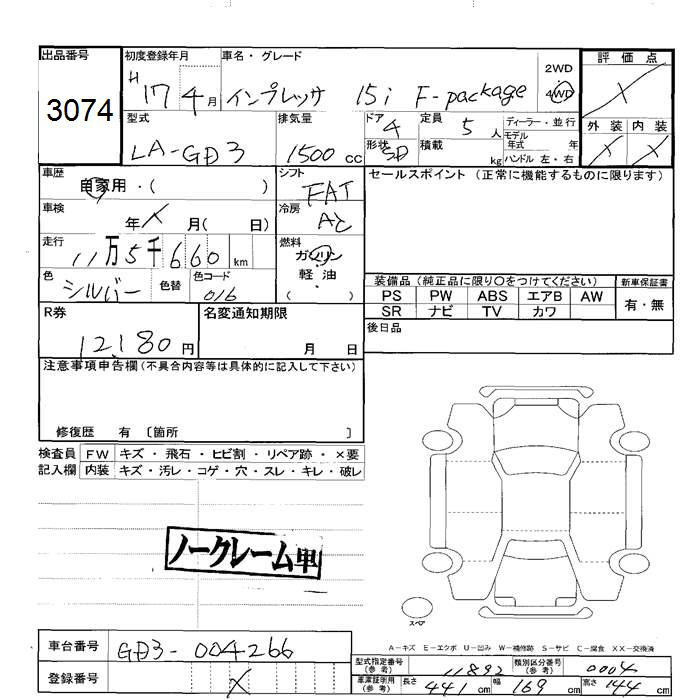 出品番号 初度登録年月 車名・グレード 2WD 評価点
3074 H 17 4月 インプレッサ 15i F-package 4WD X
型式 排気量 ドア 4 定員 5人 ディーラー・並行 外装 内装
LA-GD3 1500cc 形状 SD 積載 kg モデル年式 年 X X
ハンドル 左・右
車歴 自家用・( ) シフト FAT セールスポイント (正常に機能するものに限ります)
車検 年 X 月( 日) 冷房 AC
走行 11万5千660km 燃料 ガソリン
色 シルバー 色替 色コード 016 軽・油
( )
装備品 (純正品に限り〇をつけてください) 新車保証書
PS PW ABS エアB AW 有・無
SR ナビ TV カワ
R券 名変通知期限 後日品
12,180円 月 日
注意事項申告欄(不具合内容等は具体的に記入して下さい)
修復歴 有 〔箇所 〕
検査員 FW キズ・飛石・ヒビ割・リペア跡・×要
記入欄 内装 キズ・汚レ・コゲ・穴・スレ・キレ・破レ
ノークレーム車
スペア
A-キズ E-エクボ U-凹み W-補修跡 S-サビ C-腐食 XX-交換済
車台番号 GD3-004266
登録番号 X
型式指定番号(参考) 11892 類別区分番号(参考) 0004
車庫証明用(参考) 長さ 441cm 幅 169cm 高さ 144cm